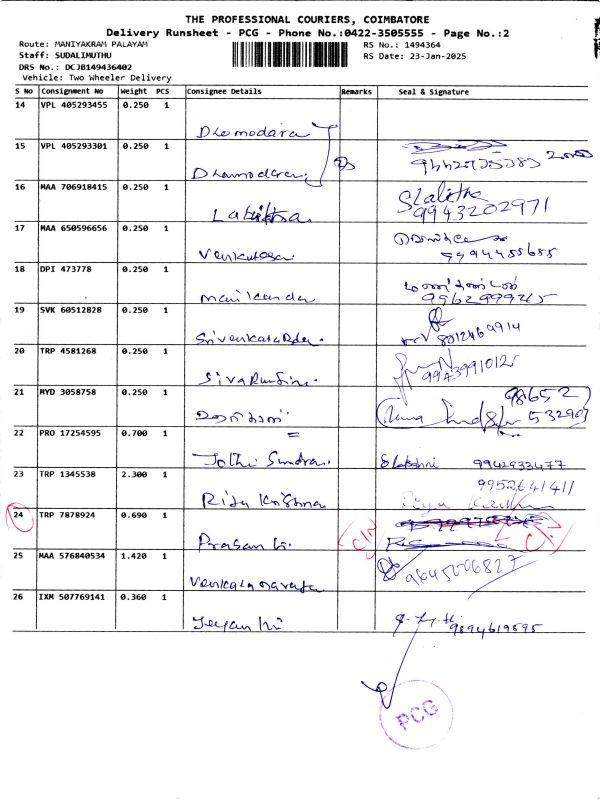 THE PROFESSIONAL COURIERS, COIMBATORE
Delivery Runsheet - PCG - Phone No.:0422-3505555 - Page No.:2
Route: MANIYAKRAM PALAYAM
RS No.: 1494364
Staff: SUDALIMUTHU
RS Date: 23-Jan-2025
DRS No.: DCJB149436402
Vehicle: Two Wheeler Delivery
S No Consignment No Weight PCS Consignee Details Remarks Seal & Signature
14 VPL 405293455 0.250 1 Dhomodara
15 VPL 405293301 0.250 1 Dhamodaran
16 MAA 706918415 0.250 1 Lalitha S Lalitha
9943202971
17 MAA 650596656 0.250 1 Venkatesa
9994455655
18 DPI 473778 0.250 1 Manikanda மணிகண்டன்
9962999265
19 SVK 60512828 0.250 1
8012469914
20 TRP 4581268 0.250 1
9943991012
21 MYD 3058758 0.250 1 98652
53290
22 PRO 17254595 0.700 1 Jothi Sundra S Lakshmi 9942933477
23 TRP 1345538 2.300 1 Riya Krishna 9952641411
24 TRP 7878924 0.690 1 Prasan
25 MAA 576840534 1.420 1 9645006827
26 IXM 507769141 0.360 1 9894619595
PCG